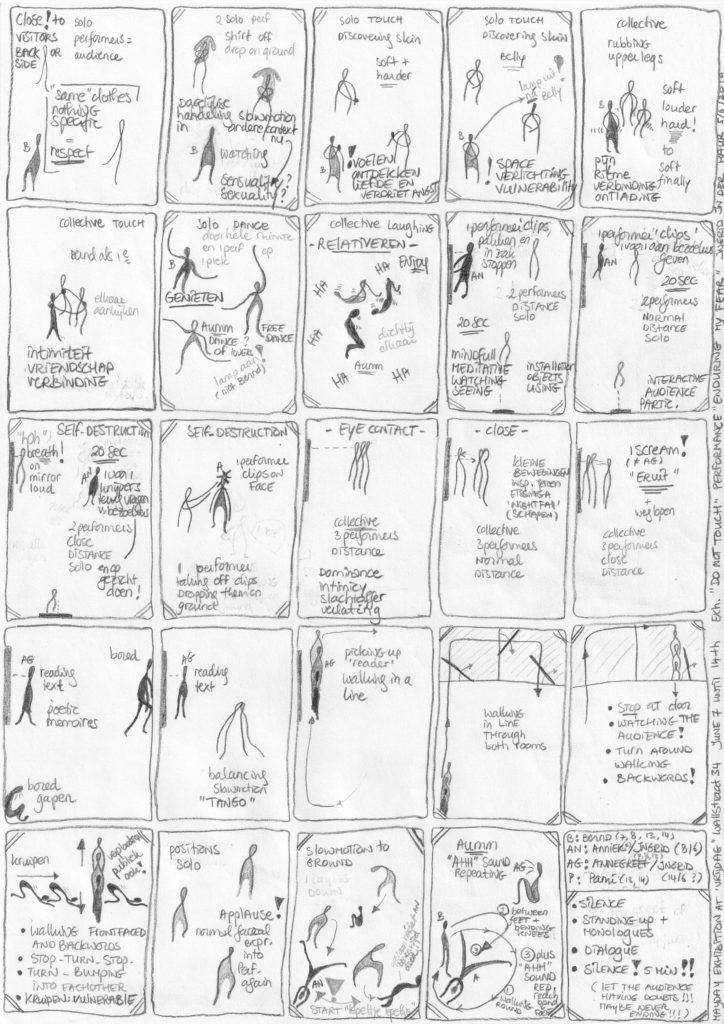 CLOSE! to
VISITORS
BACK OR
SIDE
solo
performers =
audience
"same" clothes
nothing
specific
=
respect
B
2 solo perf
shirt off
drop on ground
Dagelijkse
handeling
in
slowmotion
andere context
nu
B
watching
sensuality?
sexuality?
solo TOUCH
discovering skin
soft +
harder
B
! VOELEN
ONTDEKKEN
LIEFDE EN
VERDRIET ANGST
solo TOUCH
Discovering skin
Belly
lamp uit!
na Belly
B
! SPACE
VERLICHTING
VULNERABILITY
collective
rubbing
upper legs
soft
louder
hard!
to
soft
finally
B
pijn
RITME
VERBINDING
ONTLADING
collective TOUCH
Bernd als 1e
elkaar
aankijken
intimiteit
VRIENDSCHAP
VERBINDING
SOLO DANCE
door hele ruimte
en 1 perf op
1 plek
B
GENIETEN
Aumm
DANCE?
OF TOUCH
FREE
DANCE
lamp aan!
(niet Bernd)
collective Laughing
- RELATIVEREN -
Enjoy
HA
HA
HA
HA
HA
HA
dichtbij
elkaar
Aumm
1 performer clips,
pakken en
in zak
stoppen
AN
2 performers
DISTANCE
SOLO
20 SEC
mindfull
MEDITATIVE
WATCHING
SEEING
INSTALLATION
OBJECTS
USING
1 performer "clips"
1 voor 1 aan bezoekers
geven
AN
20 SEC
2 performers
NORMAL
DISTANCE
SOLO
INTERACTIVE
AUDIENCE
PARTIC.
SELF-DESTRUCTION
"hoh"
breath!
on
mirror
loud
20 SEC
AN
1 voor 1
knijpers
terug vragen
v. bezoekers
2 performers
close
DISTANCE
SOLO
en op
gezicht
doen!
SELF-DESTRUCTION
A
1 performer
clips on
FACE
1 performer
taking off clips
Dropping them on
ground
- EYE CONTACT -
collective
3 performers
DISTANCE
Dominance
intimicy
slachtoffer
verlating
- CLOSE -
kleine
BEWEGINGEN
(SCHAPEN)
collective
3 performers
Normal
DISTANCE
1 SCREAM!
(≠ AG)
"Eruit"
+
weglopen
collective
3 performers
close
DISTANCE
AG
reading
text
=
poetic
memoires
bored
bored
gapen
AG
reading
text
balancing
slowmotion
"TANGO"
AG
picking up
'reader'
walking in a
line
walking
in LINE
THROUGH
both rooms
• STOP at door
• WATCHING THE
AUDIENCE!
• TURN AROUND
WALKING
• BACKWORDS!
kruipen
publiek
ook!
• walking FRONTFACED
AND BACKWORDS
• STOP - TURN - STOP -
• TURN - BUMPING
INTO EACHOTHER
• KRUIPEN: VULNERABLE
positions
SOLO
Applause!
normal facial
expr.
into
Perf.
again
SLOWMOTION TO
GROUND
1 lay lies
DOWN
AN
START "
Aumm
"AHH" SOUND
REPEATING
AG
② between
FEET +
BENDING
KNEES
B
②
A
③ plus
"AHH"
SOUND
REP.
reach
hand
to
FACE
① WALKING
ROUND
B: Bernd (7, 8, 13, 14)
AN: Anniek / INGRID (8/6)
AG: ANNEGREET / INGRID
P: Pami (13, 14) (14/6 ?)
• SILENCE
• STANDING UP +
MONOLOGUES
• DIALOGUE
• SILENCE! 5 MIN!!
( LET THE AUDIENCE
HAVING DOUBTS!!!
MAYBE NEVER
ENDING!!!)
MAYDAY EXHIBITION AT "VRIJDAG" Wallstraat 34 JUNE 7 until 14th Exh. "DO NOT TOUCH" PERFORMANCE "ENDURING MY FEAR" INGRID